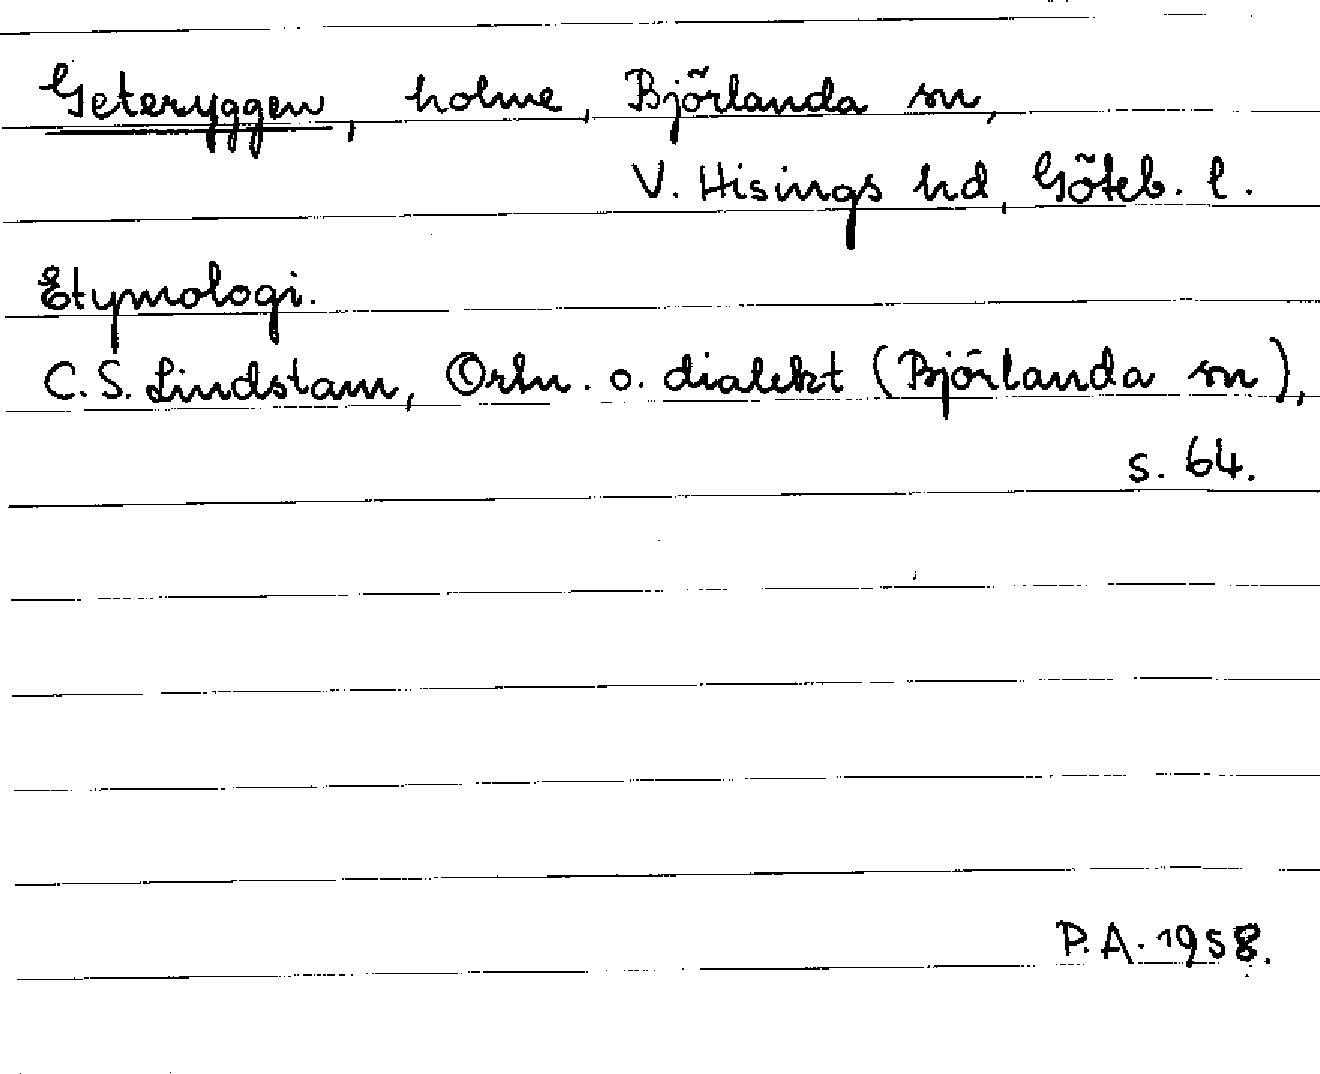 Geteryggen, holme, Björlanda sn,
V. Hisings hd, Göteb. l.
Etymologi.
C. S. Lindstam, Ortn. o. dialekt (Björlanda sn),
s. 64.
P. A. 1958.